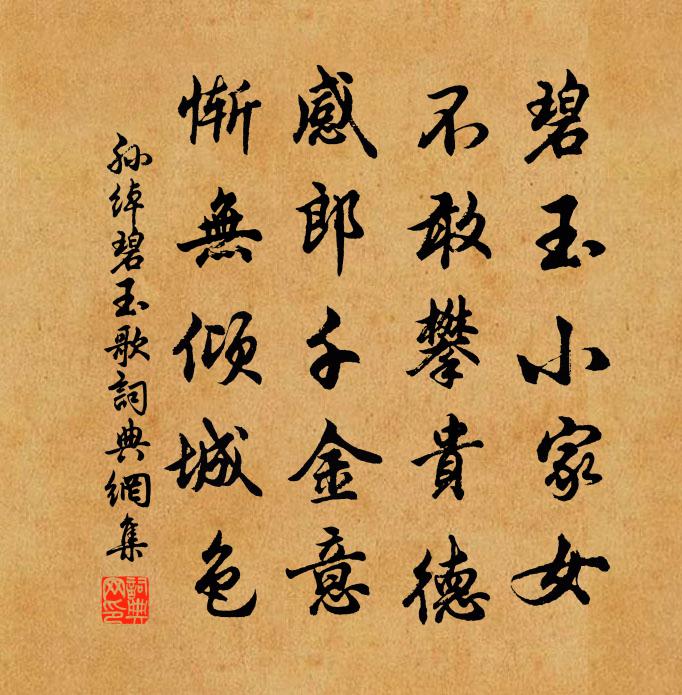 碧玉小家女
不敢攀貴德
感郎千金意
慚無傾城色
孫綽碧玉歌詞典網集
詞典网印